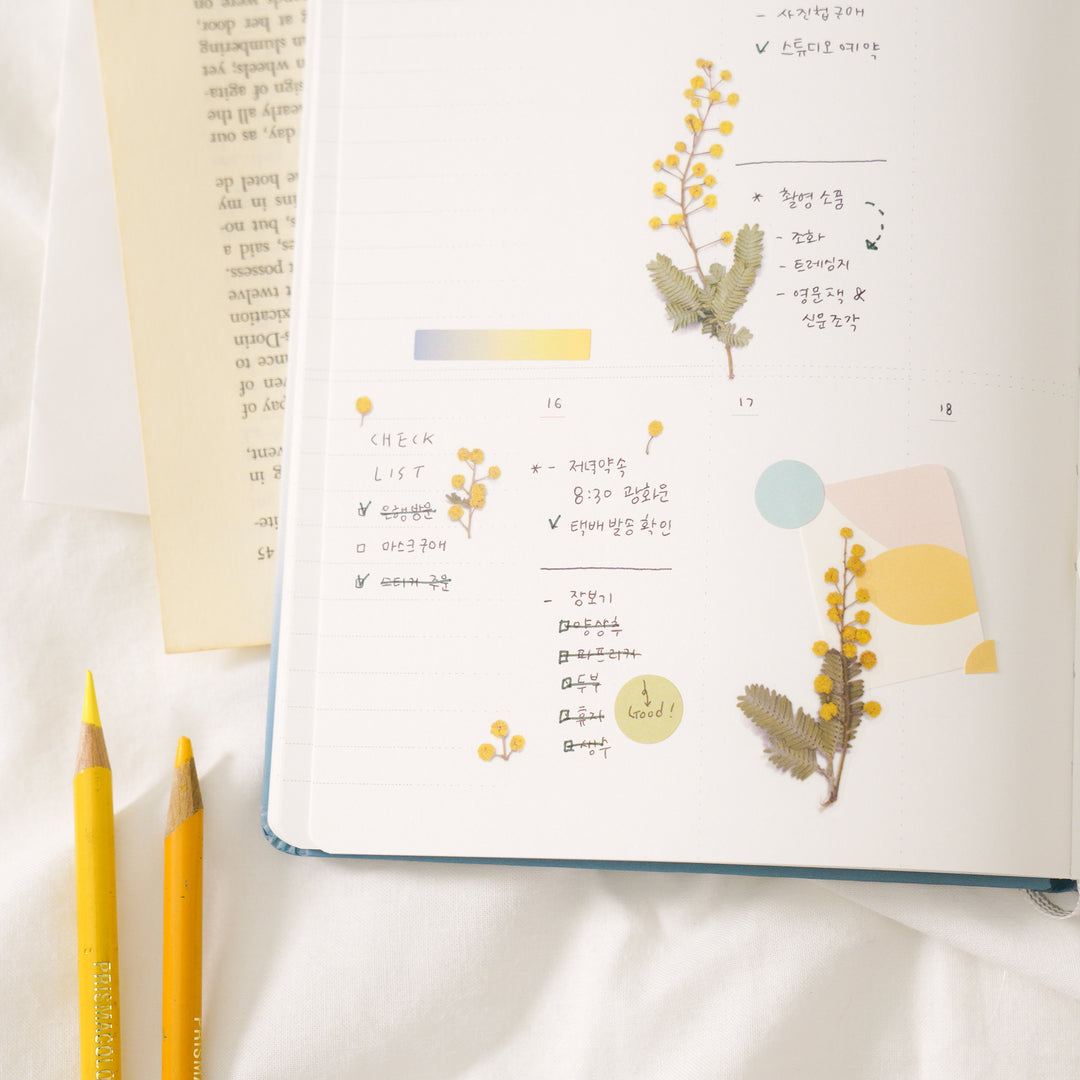 - 사진첩구매
✓ 스튜디오 예약
* 촬영 소품
- 조화
- 트레싱지
- 영문책 &
신문조각
16
17
18
CHECK
LIST
은행방문
마스크구매
스티커 주문
* - 저녁약속
8:30 광화문
✓ 택배발송확인
- 장보기
양상추
파프리카
두부
휴지
생수
Good!
on
at her door,
slumbering
wheels; yet
sign of agita-
nearly all the
day, as our
hotel de
ins in my
, but no-
es, said a
possess.
twelve
xication
s-Dorin-
ance to
ven of
pay of
vent,
g in
ite-
45
PRISMACOLO
PRISMA